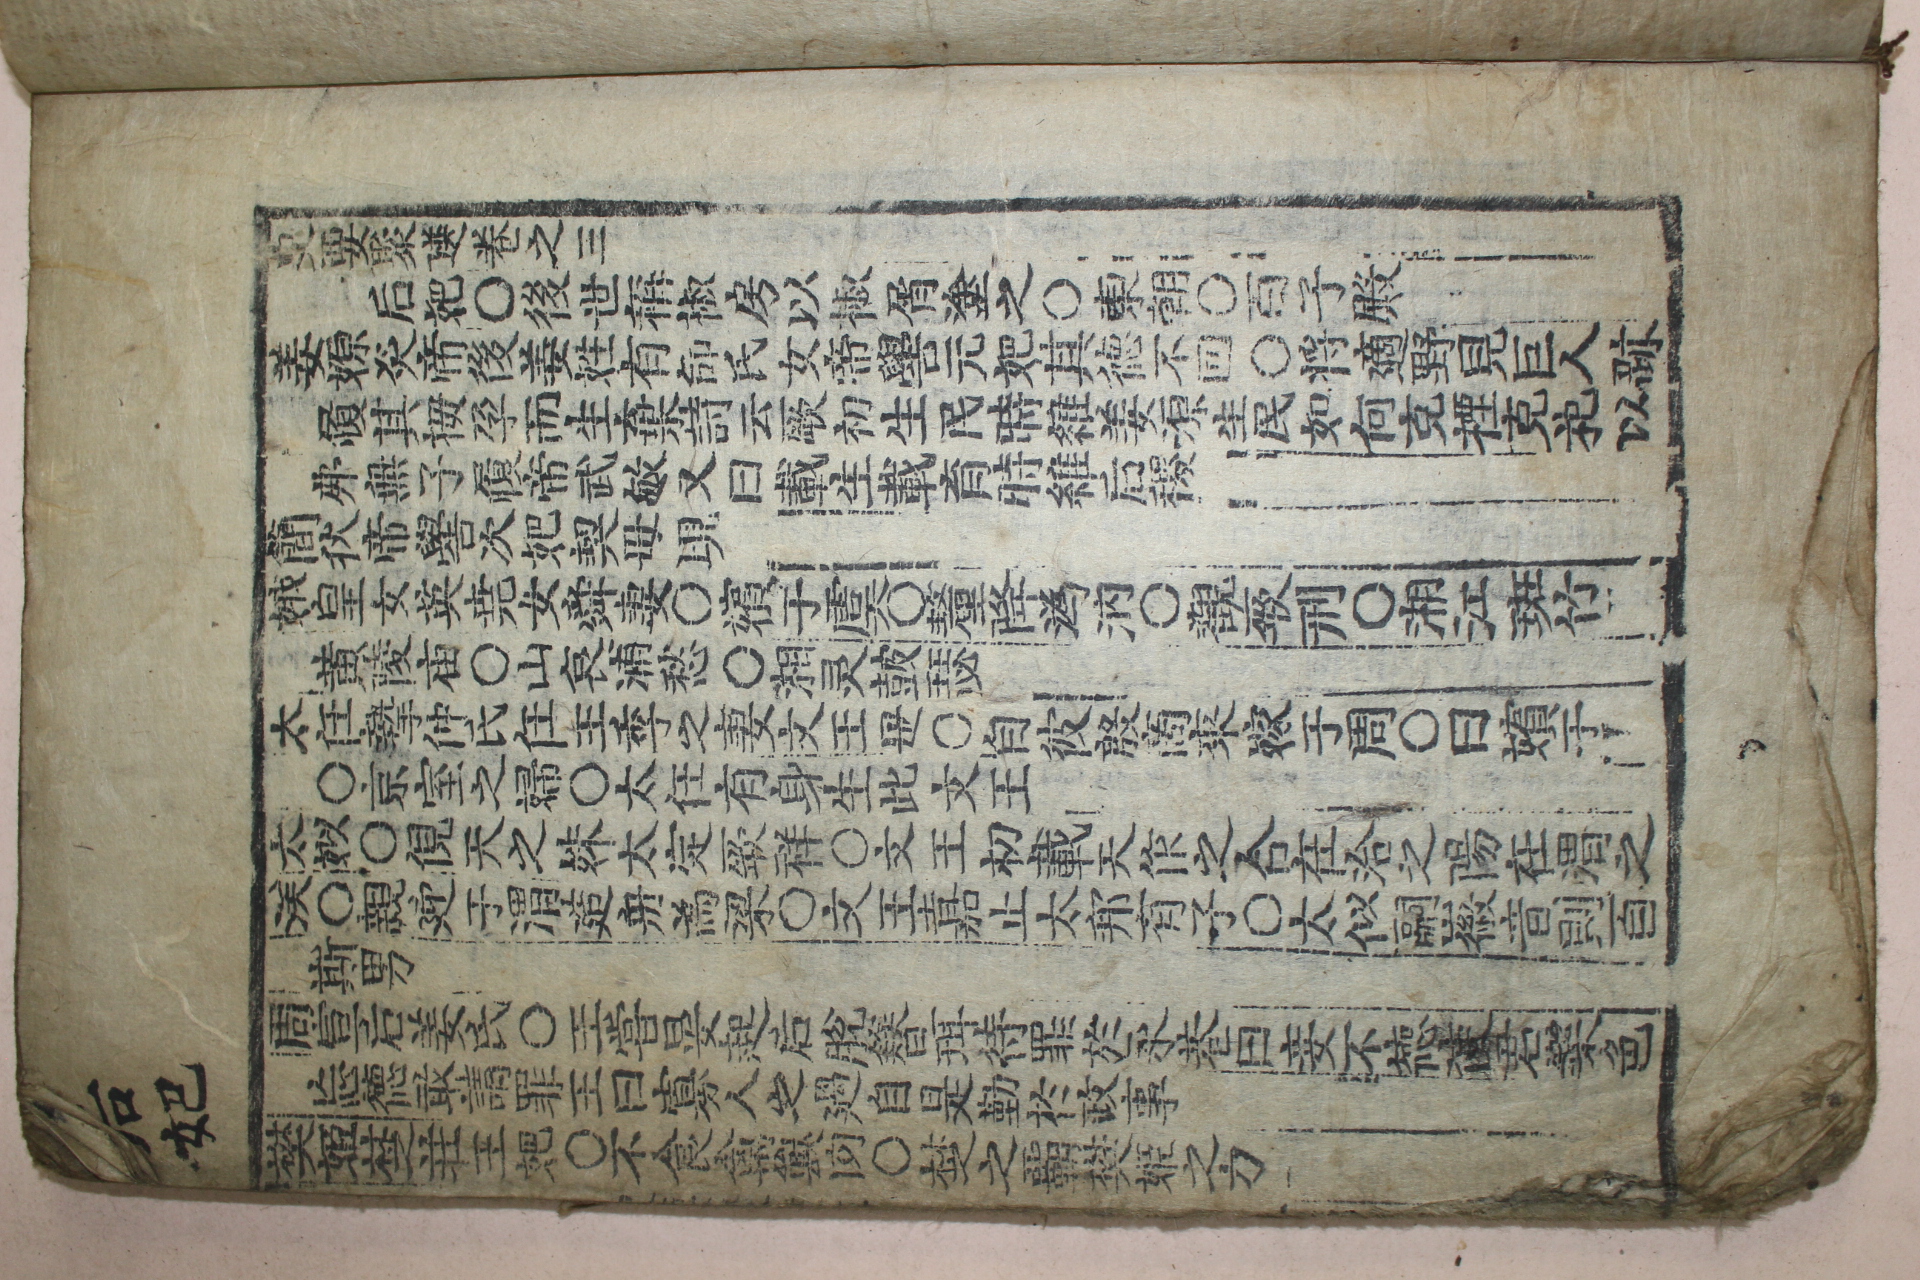 史要聚選卷之三
后妃○後世稱椒房以椒屑塗之○東朝○百子殿
姜嫄炎帝後姜姓有邰氏女帝嚳元妃其德不回○將適野見巨人跡
履其拇孕而生棄詩云厥初生民時維姜嫄生民如何克禋克祀以
弗無子履帝武敏又曰載生載育時維后稷
簡狄帝嚳次妃契母
娥皇女英堯女舜妻○嬪于虞○釐降溈汭○觀厥刑○湘江斑竹
黃陵庙○山哀浦愁○湘灵鼓瑟
太任摯仲氏任王季之妻文王母○自彼殷商來嫁于周○曰嬪于
○京室之婦○太任有身生此文王
太姒○俔天之妹大定厥祥○文王初載天作之合在洽之陽在渭之
涘○親迎于渭造舟爲梁○文王嘉止大邦有子○太似嗣徽音則百
斯男
周宣后姜氏○王嘗晏起后脫簪珥待罪於永巷曰妾不君樂色
忘德敢請罪王曰寡人之過自是勤於政事
樊姬楚莊王妃○不食禽獸肉○楚之霸樊姬之力
后妃